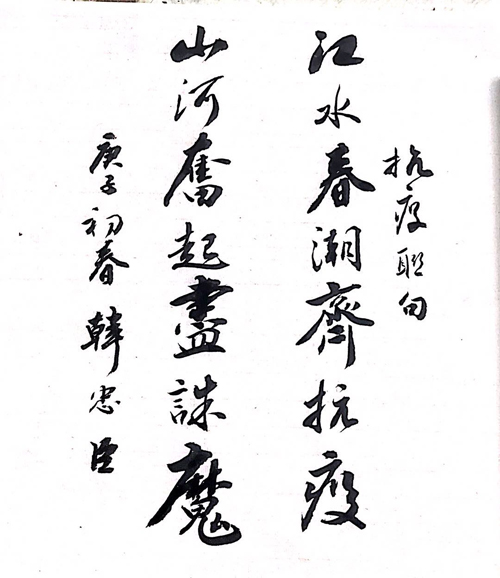 抗疫联句
江水春潮齊抗疫
山河奮起盡誅魔
庚子初春 韓忠臣